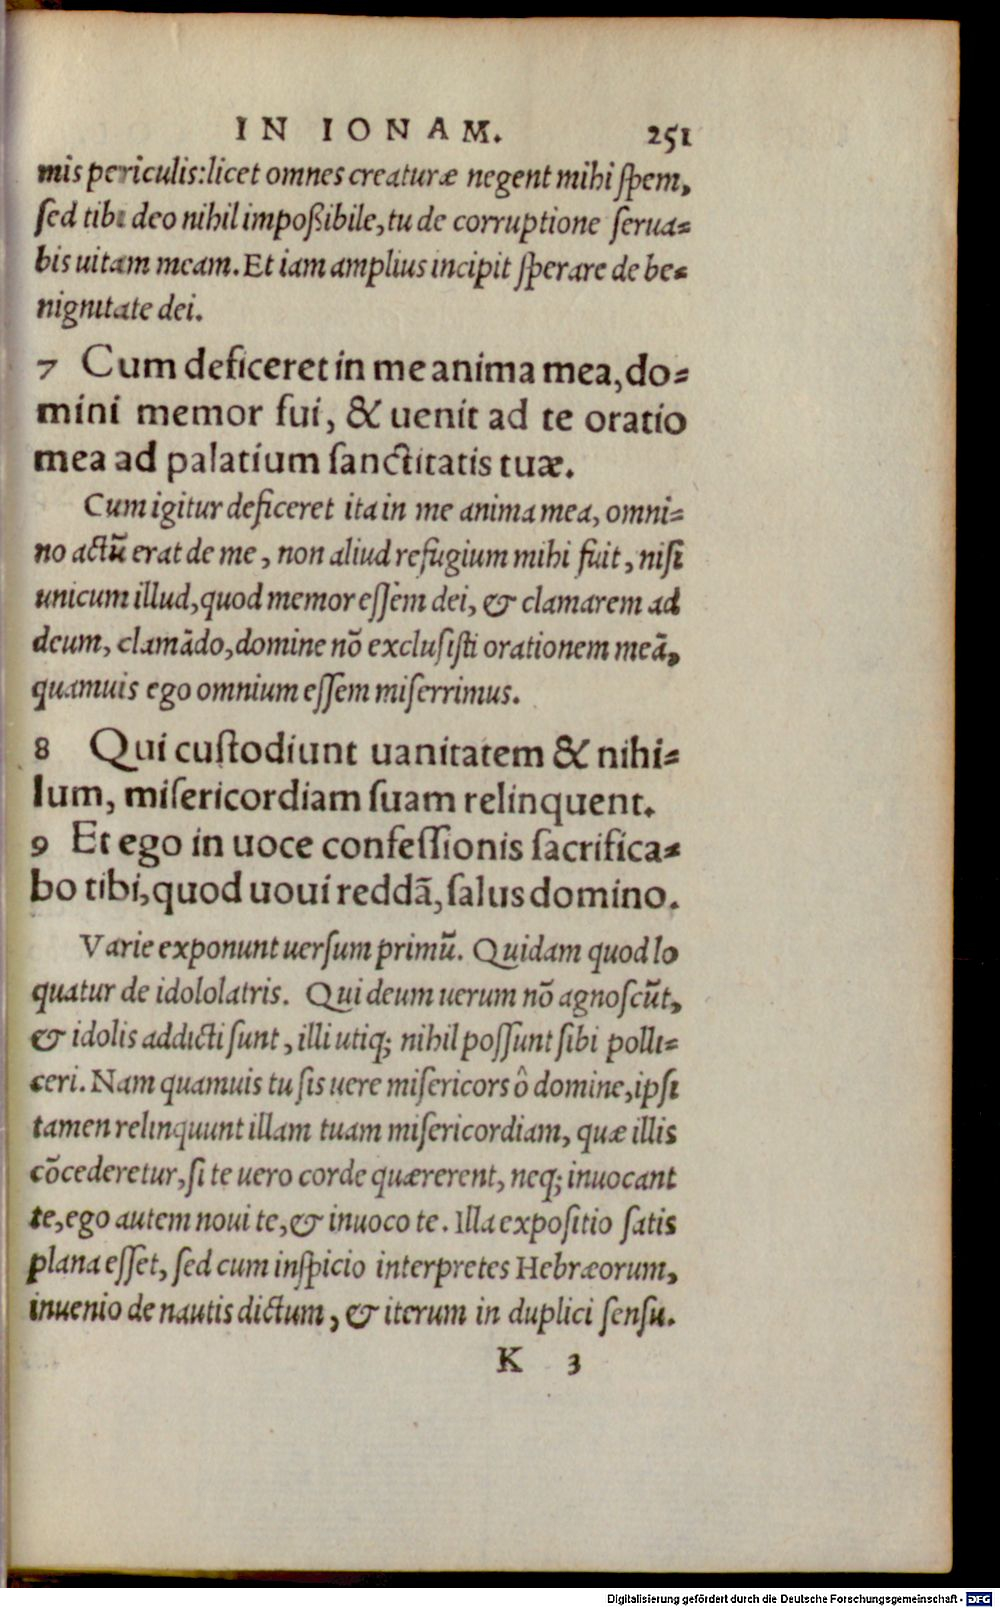 IN IONAM. 251
mis periculis: licet omnes creaturæ negent mihi ſpem,
ſed tibi deo nihil impoßibile, tu de corruptione ſerua=
bis uitam meam. Et iam amplius incipit ſperare de be=
nignitate dei.
7 Cum deficeret in me anima mea, do=
mini memor fui, & uenit ad te oratio
mea ad palatium ſanctitatis tuæ.
Cum igitur deficeret ita in me anima mea, omni=
no actũ erat de me, non aliud refugium mihi fuit, niſi
unicum illud, quod memor eſſem dei, & clamarem ad
deum, clamãdo, domine nõ excluſiſti orationem meã,
quamuis ego omnium eſſem miſerrimus.
8 Qui cuſtodiunt uanitatem & nihi=
lum, miſericordiam ſuam relinquent.
9 Et ego in uoce confeſſionis ſacrifica=
bo tibi, quod uoui reddã, ſalus domino.
Varie exponunt uerſum primũ. Quidam quod lo
quatur de idololatris. Qui deum uerum nõ agnoſcũt,
& idolis addicti ſunt, illi utiq; nihil poſſunt ſibi polli=
ceri. Nam quamuis tu ſis uere miſericors ô domine, ipſi
tamen relinquunt illam tuam miſericordiam, quæ illis
cõcederetur, ſi te uero corde quærerent, neq; inuocant
te, ego autem noui te, & inuoco te. Illa expoſitio ſatis
plana eſſet, ſed cum inſpicio interpretes Hebræorum,
inuenio de nautis dictum, & iterum in duplici ſenſu.
K 3
Digitalisierung gefördert durch die Deutsche Forschungsgemeinschaft - DFG